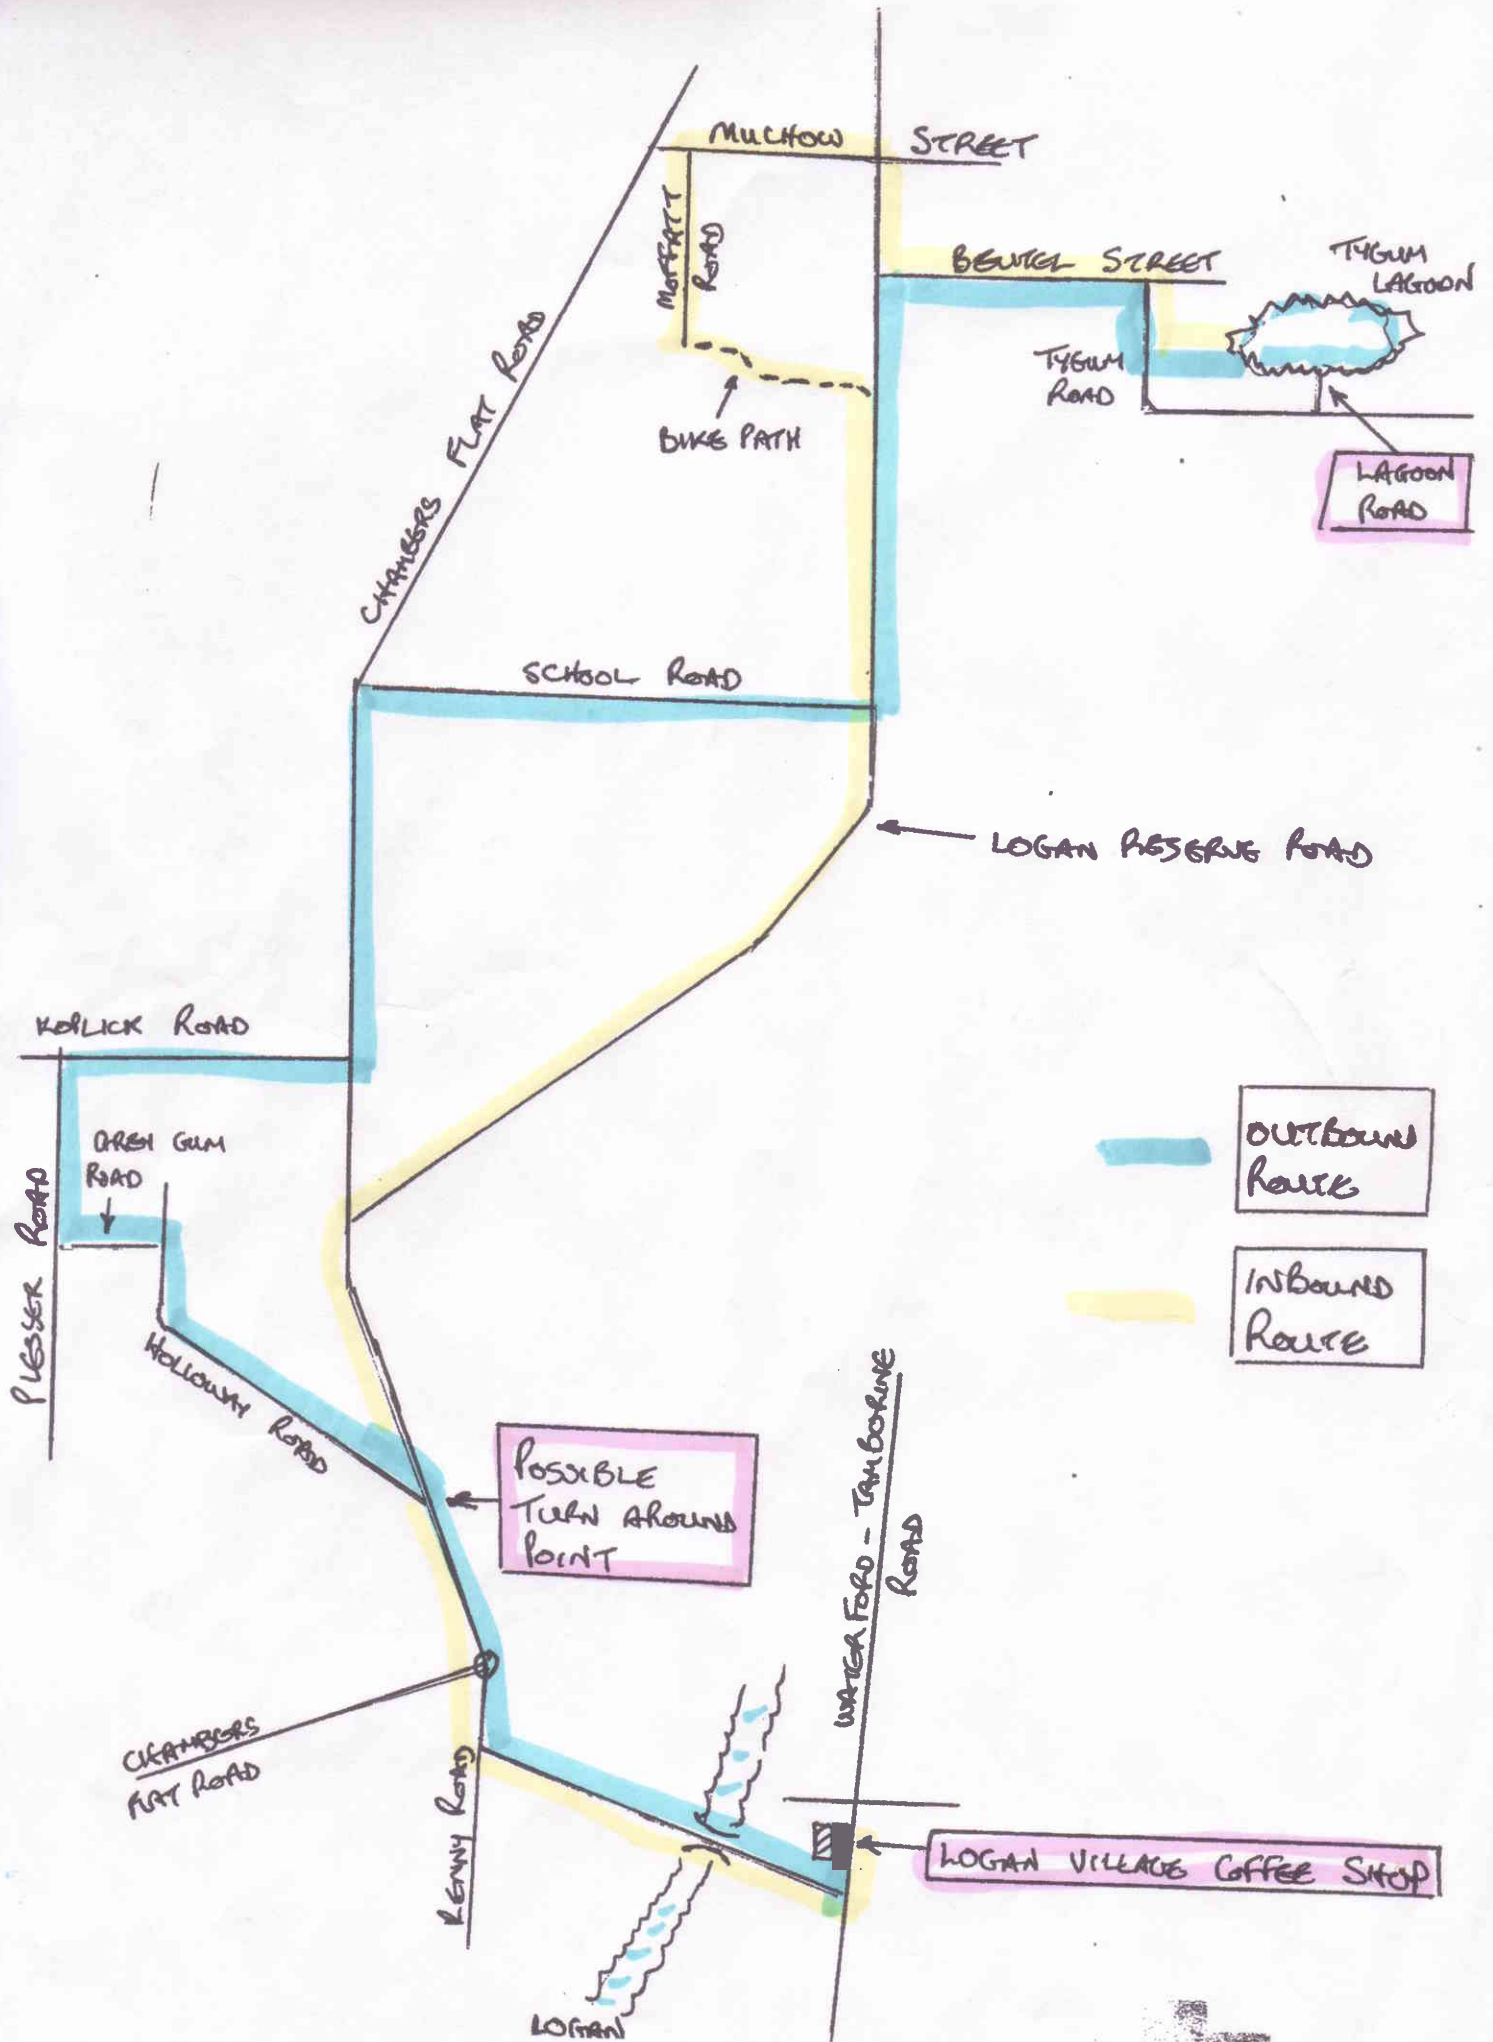 MUCHOW STREET
MOFFATT
ROAD
BEUTEL STREET
TYGUM
LAGOON
TYGUM
ROAD
CHAMBERS FLAT ROAD
BIKE PATH
LAGOON
ROAD
SCHOOL ROAD
LOGAN RESERVE ROAD
KOPLICK ROAD
GREY GUM
ROAD
PLESSER ROAD
HOLLOWAY ROAD
OUTBOUND
ROUTE
INBOUND
ROUTE
POSSIBLE
TURN AROUND
POINT
WATERFORD - TAMBORINE
ROAD
CHAMBERS
FLAT ROAD
RENNY ROAD
LOGAN VILLAGE COFFEE SHOP
LOGAN